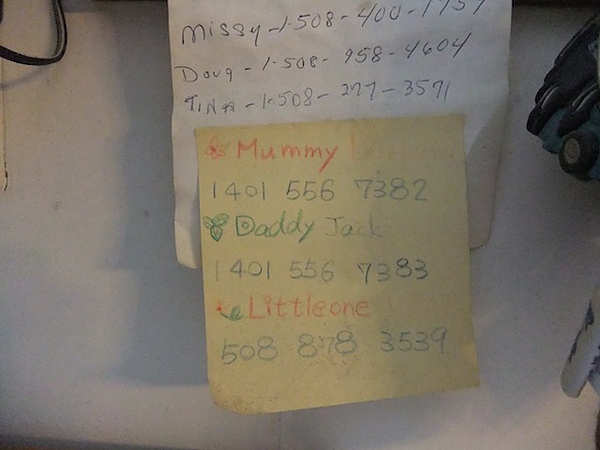 Missy-1-508-400-1737
Doug-1-508-958-4604
TINA-1-508-277-3571
Mummy
1 401 556 7382
Daddy Jack
1 401 556 7383
Littleone
508 878 3539